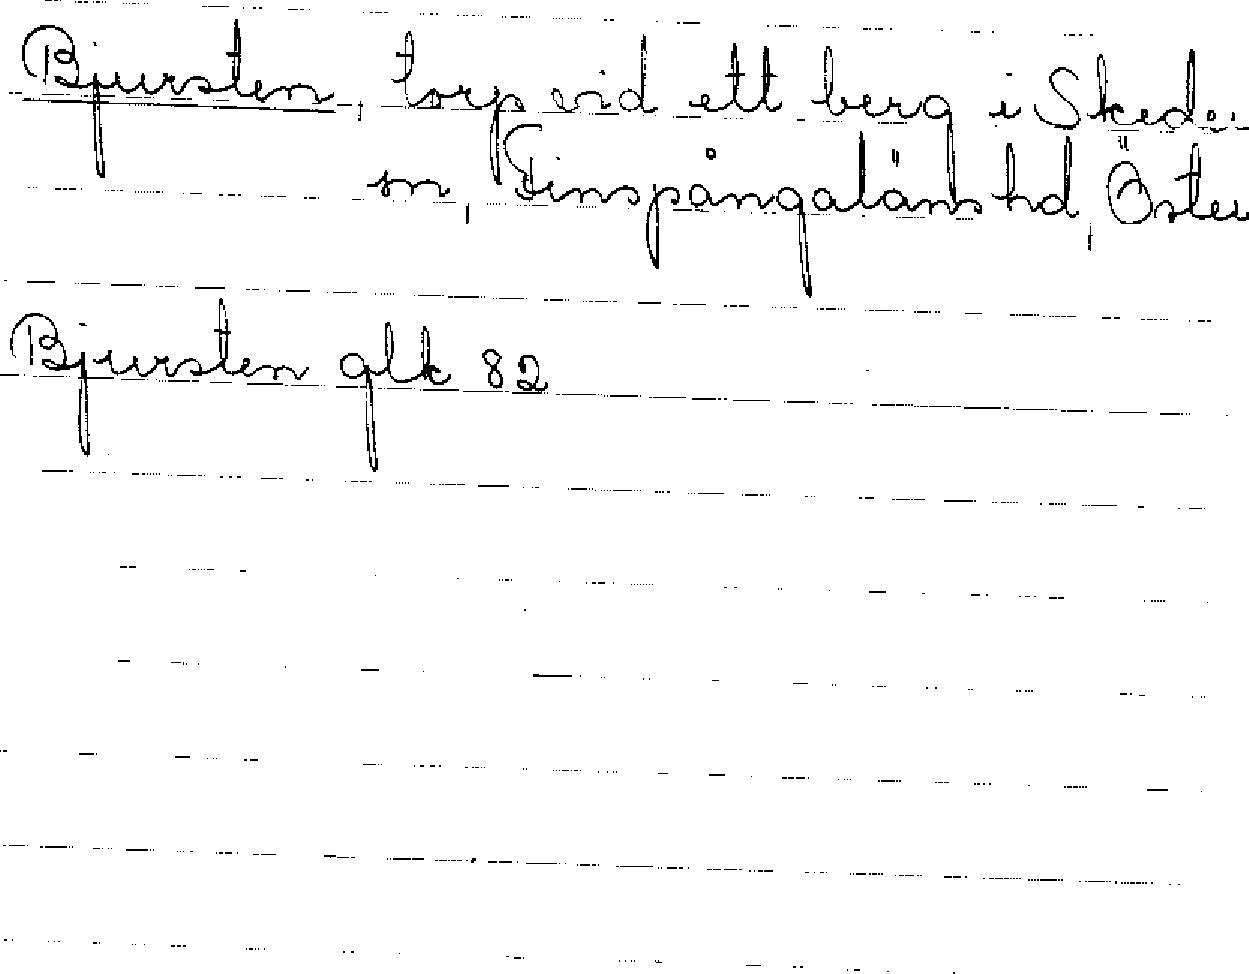 Bjursten, torp vid ett berg i Skede
sn, Finspångaläns hd, Öster
Bjursten glk 82